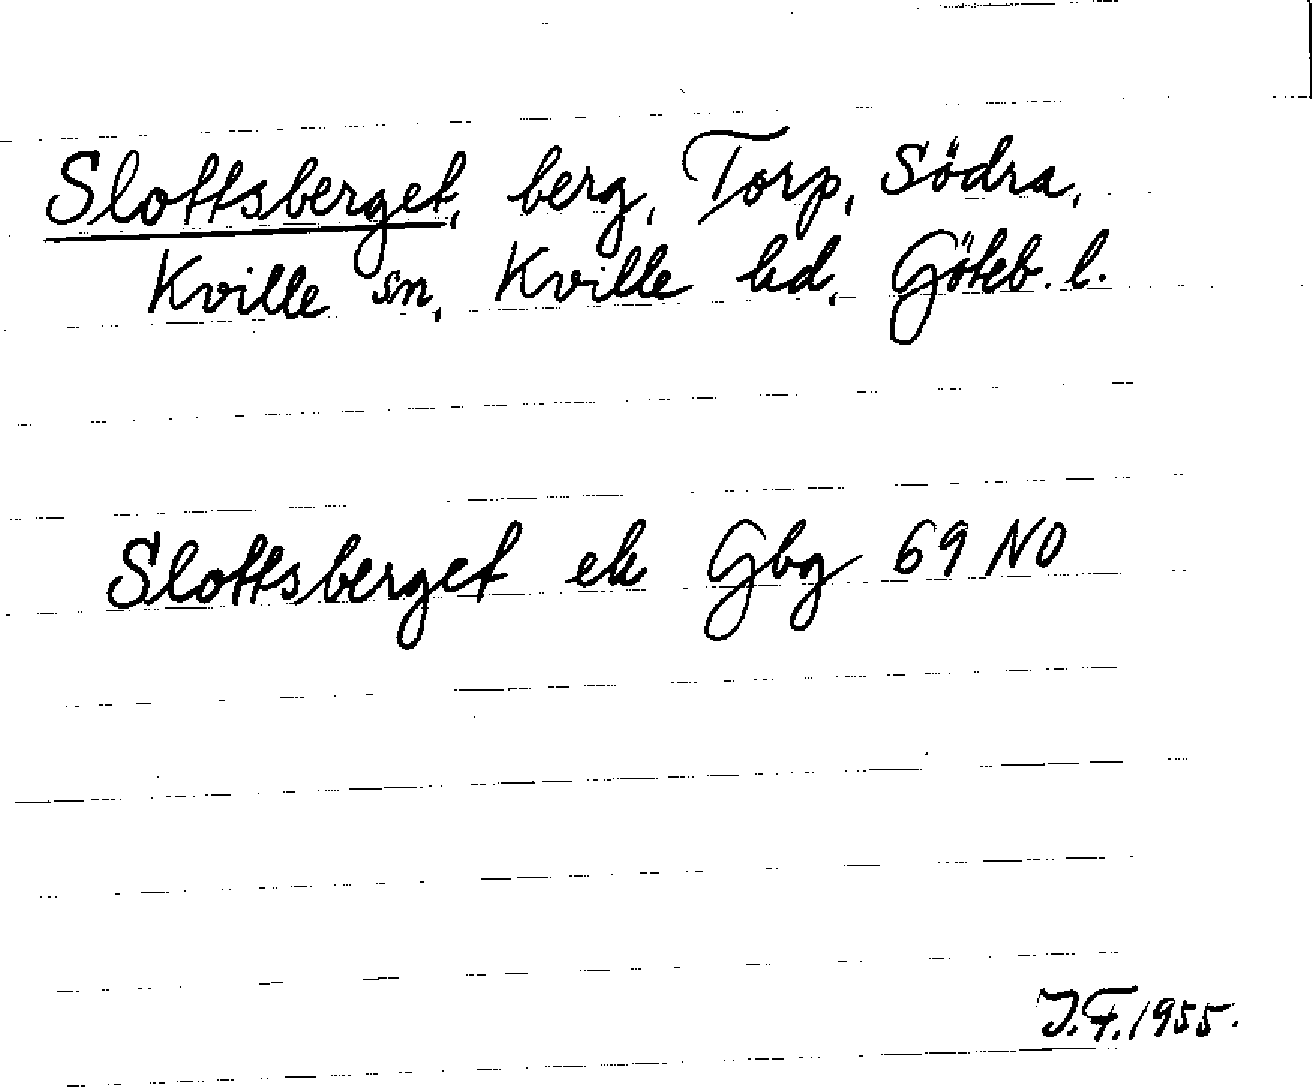 Slottsberget, berg, Torp, Södra,
Kville sn, Kville hd, Göteb. l.
Slottsberget ek Gbg 69 NO
J.F. 1955.